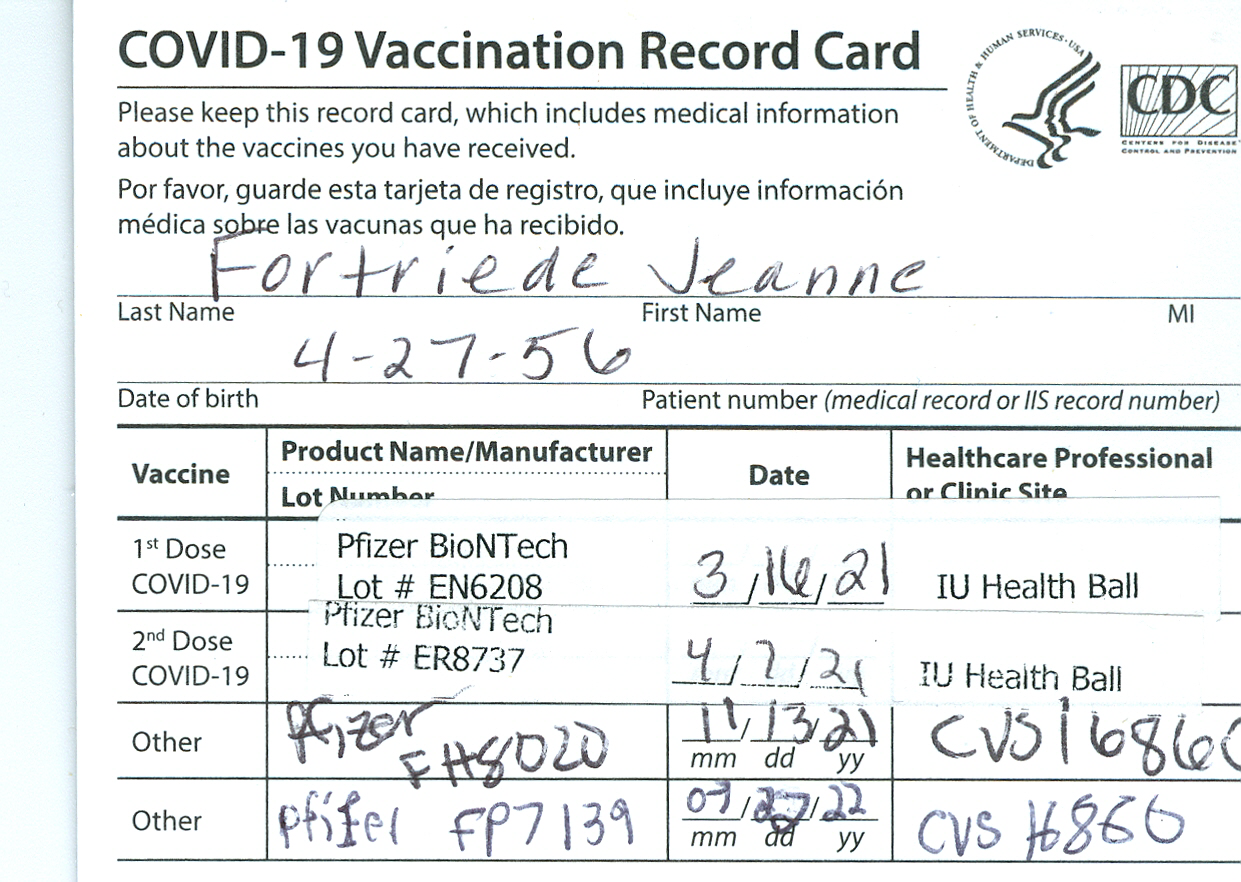 COVID-19 Vaccination Record Card
DEPARTMENT OF HEALTH & HUMAN SERVICES · USA
CDC
CENTERS FOR DISEASE
CONTROL AND PREVENTION
Please keep this record card, which includes medical information
about the vaccines you have received.
Por favor, guarde esta tarjeta de registro, que incluye información
médica sobre las vacunas que ha recibido.
Fortriede Jeanne
Last Name First Name MI
4-27-56
Date of birth Patient number (medical record or IIS record number)
Vaccine Product Name/Manufacturer Date Healthcare Professional
Lot Number or Clinic Site
1st Dose Pfizer BioNTech 3/16/21 IU Health Ball
COVID-19 Lot # EN6208
2nd Dose Pfizer BioNTech 4/7/21 IU Health Ball
COVID-19 Lot # ER8737
Other Pfizer FH8020 11/13/21 CVS 16860
mm dd yy
Other Pfifer FP7139 /22 CVS 16860
mm dd yy